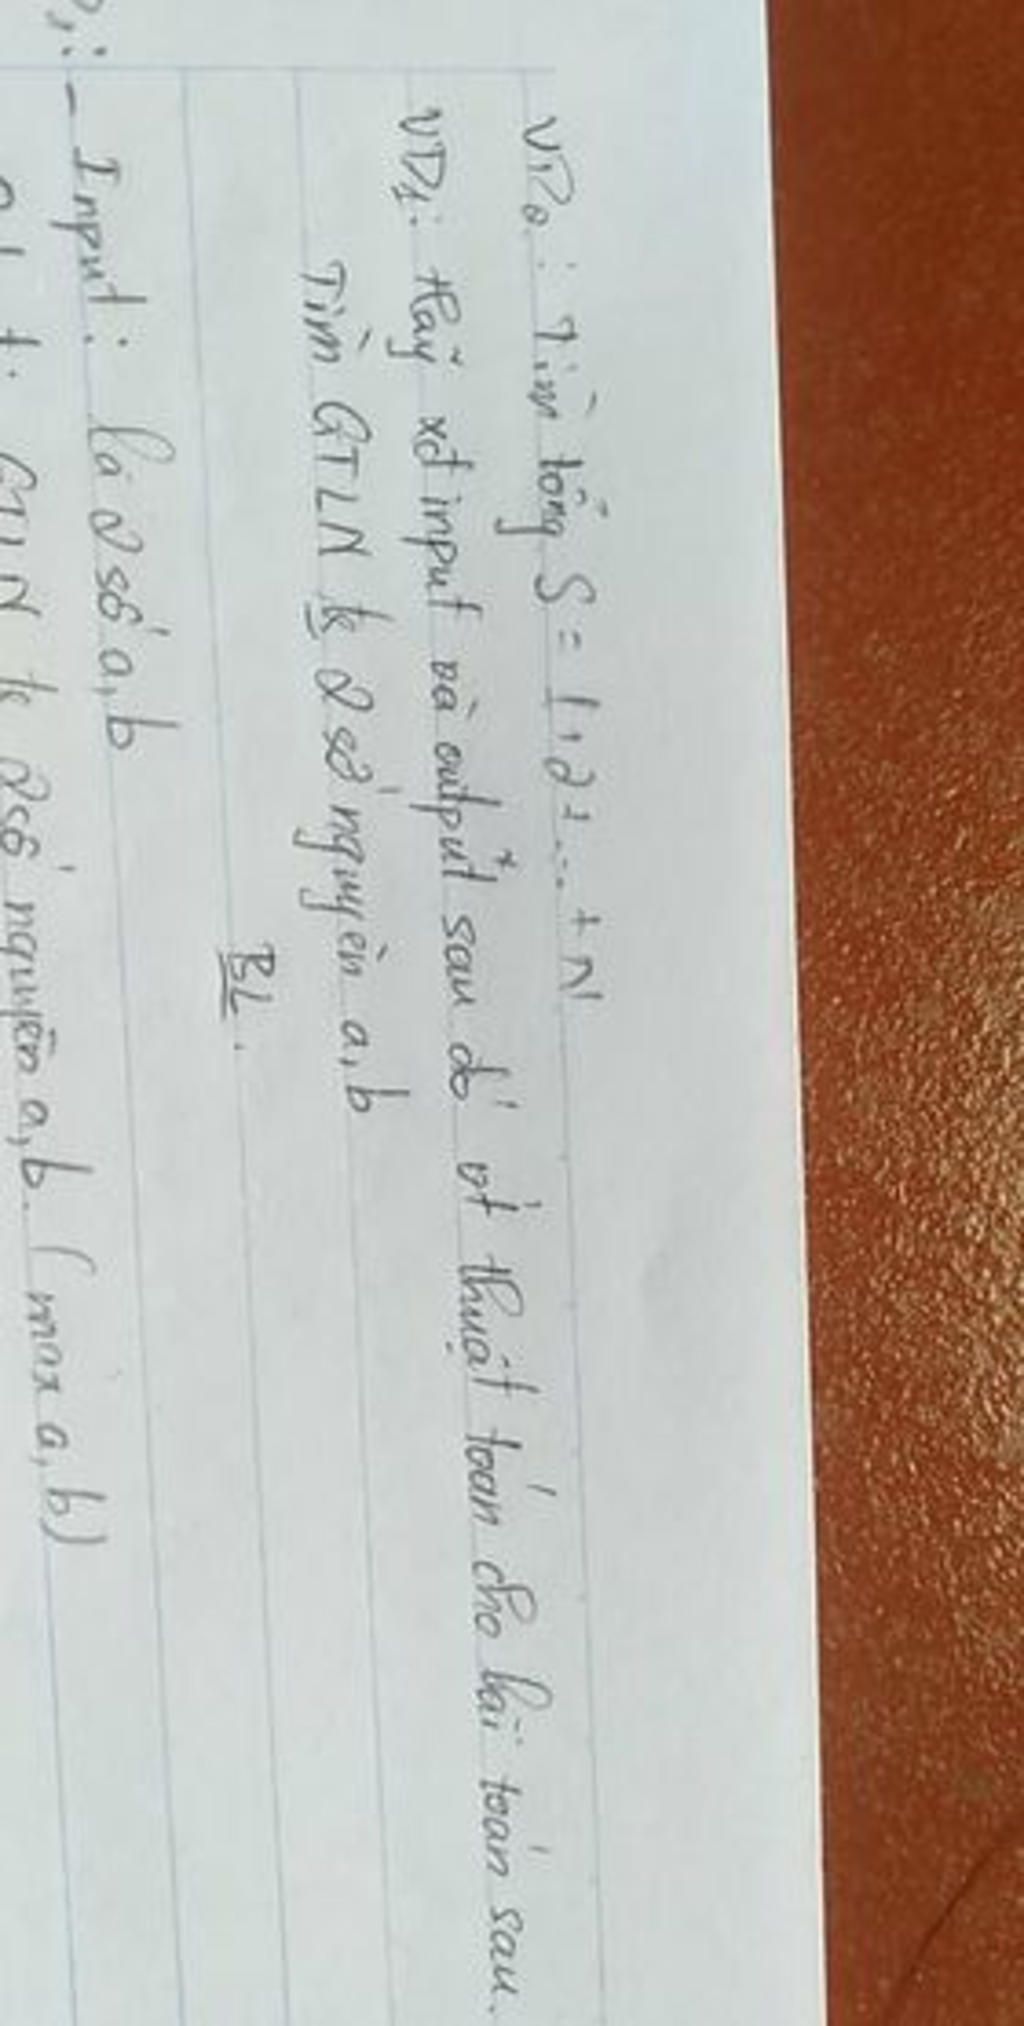 VD2: Tìm tổng S = 1+2+...+N
VD1: Hãy xđ input và output sau đó vt thuật toán cho bài toán sau.
Tìm GTLN 2 số nguyên a,b
BL.
- Input: là 2 số a,b
GTLN 2 số nguyên a,b (max a,b)